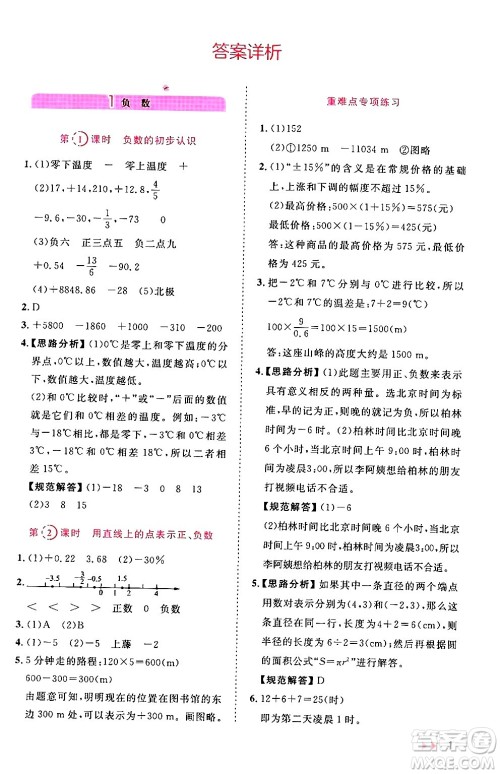 答案详析
1 负数
第1课时 负数的初步认识
1.(1)零下温度 － 零上温度 ＋
(2)17,＋100,＋1.8,4/5
－9.6,－30,－1
(3)负六 正三点五 负二点九
＋0.54 －13/6 －90.2
(4)＋8848.86 －2 负极
2.D
3.＋5800 －1860 ＋1000 －4300
4.【思路分析】(1)0℃是正、负温度的分
界点,0℃以上,数值越大,温度越高;0℃以
下,数值越大,温度越低。
(2)和0℃比较时,“＋”或“－”后面的数
值表示与0℃相差的温度。如:3℃比0℃
高3℃,－3℃比0℃低3℃,所以二者相
差6℃。
【规范解答】(1)－3 0 8 13
(2)3 8 13 16
第2课时 用直线上的点表示正、负数
1.(1)＋0.22 3.68 (2)－30%
2.
－3.5 －1.5 1/2 1.5
－4 －3 －2 －1 0 1 2 3
＜ ＜ ＞ 正数 负数
3.(1)A (2)B
4.(1)－5 (2)－5 上藤 －2
5.5分钟走的路程:120×5＝600(m)
600－300＝300(m)
由题意可知,明明现在的位置在图书馆的
东边,距离图书馆300m处。画图略。
重难点专项练习
1.(1)152
(2)①1250 m －11034 m ②图略
2.(1)“±15%”的含义是在常规价格的基础
上,上涨和下调不大于15%。
(2)最高价格:500×(1＋15%)＝575(元)
最低价格:500×(1－15%)＝425(元)
答:这种商品的最高价格为575元,最低
价格是425元。
3.把－2℃和7℃分别与0℃进行比较,所以
－2℃与7℃的温差是:2＋7＝9(℃)
100×9/0.6＝1500(m)
答:这座山峰的高度大约是1500m。
4.【思路分析】(1)此题主要用正、负数来表示
具有意义相反的两种量。选北京时间为
标准,北京时间记为0,因为柏林时间比北京时间晚
(2)如果现在是北京时间8:00,那么柏林
时间是凌晨2:00,李阿姨想给柏林的朋友
打视频电话不合适。
【规范解答】(1)－6
(2)柏林时间比北京时间晚6小时,所以
柏林时间是凌晨2:00,李阿姨想给柏林的
朋友打视频电话不合适。
5.【思路分析】如果其中一条直径的两个端点
用数对表示分别是(－2,3)和(4,3),那么
这条直径的长度就是2＋4＝6,则这个圆的
半径的长度是6÷2＝3,最后根据圆
的面积公式“S＝πr²”计算即可。
【规范解答】D
6.12＋6＋7＝25(时)
即为第二天凌晨1时。